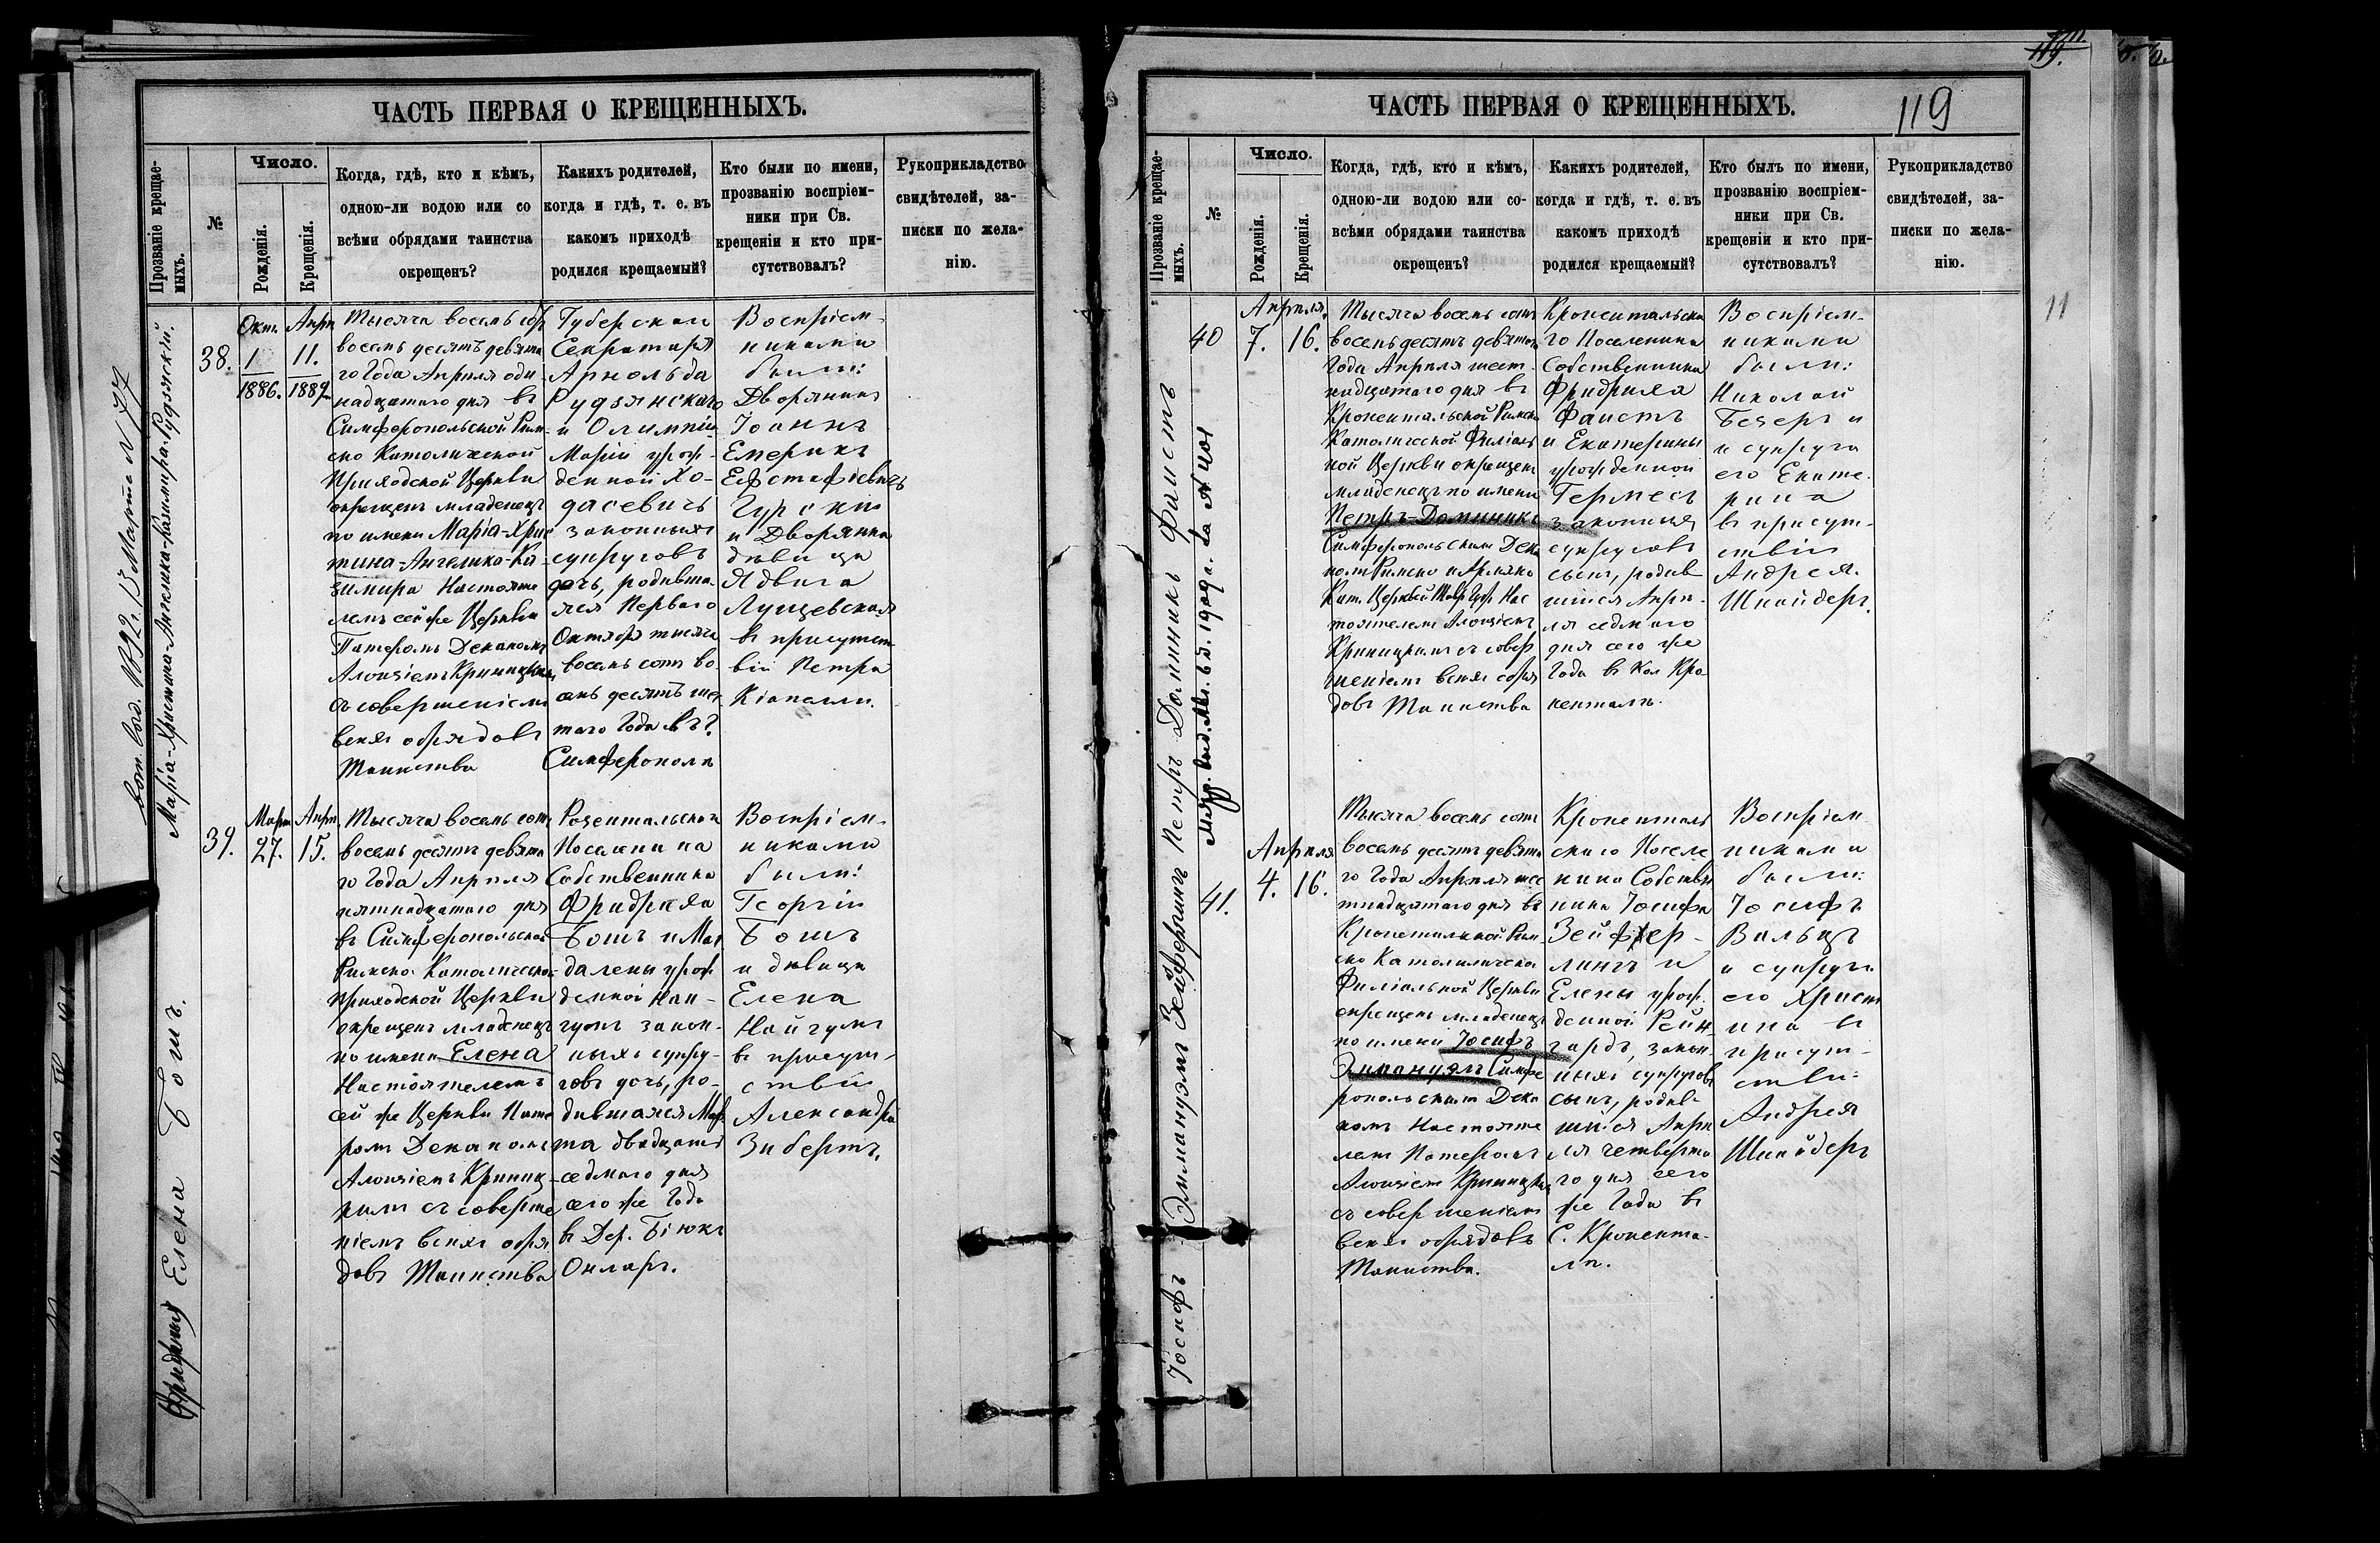 ЧАСТЬ ПЕРВАЯ О КРЕЩЕННЫХЪ.
Прозваніе крещае-
мыхъ.
№
Число.
Рожденія.
Крещенія.
Когда, гдѣ, кто и кѣмъ,
одною-ли водою или со
всѣми обрядами таинства
окрещенъ?
Какихъ родителей,
когда и гдѣ, т. е. въ
какомъ приходѣ
родился крещаемый?
Кто были по имени,
прозванію воспріем-
ники при Св.
крещеніи и кто при-
сутствовалъ?
Рукоприкладство
свидѣтелей, за-
писки по жела-
нію.
1892 г. 13 Марта № 77
Марія-Христина-Ангелика-Казимира Рудзянскій.
38.
Окт.
1
1886.
Апрѣ
11.
1889
Тысяча восемь сотъ
восемь десятъ девята
го Года Апрѣля оди
надцатаго дня въ
Симферопольской Рим-
ско Католической
Приходской Церкви
окрещенъ младенецъ
по имени Марія-Хрис
тина-Ангелика-Ка-
зимира Настояте
лемъ сей же Церкви
Патеромъ Деканомъ
Алоизіемъ Криницкимъ
съ совершеніемъ
всѣхъ обрядовъ
Таинства
Губерскаго
Секретаря
Арнольда
Рудзянскаго
и Олимпіи
Маріи урож-
денной Хо-
дасевичъ
законныхъ
супруговъ
дочь, родивша-
яся Перваго
Октября тысяча
восемь сотъ во
семь десятъ шес
таго Года въ г.
Симферополѣ
Воспріем-
никами
были:
Дворянинъ
Іоаннъ
Емерикъ
Ефстафіевичъ
Гурскій
и Дворянка
дѣвица
Ядвига
Лущевская
въ присутст
віи Петра
Кіапалли.
Елена Бошъ.
39.
Март
27.
Апрѣ
15.
Тысяча восемь сотъ
восемь десятъ девята
го Года Апрѣля
пятнадцатаго дня
въ Симферопольской
Римско Католической
приходской Церкви
окрещенъ младенецъ
по имени Елена
Настоятелемъ
сей же Церкви Пате
ромъ Деканомъ
Алоизіемъ Криниц-
кимъ съ соверше
ніемъ всѣхъ обря
довъ Таинства
Розентальскаго
Поселенина
Собственника
Фридриха
Бошъ и Маг
далены урож
денной Наи-
гумъ закон-
ныхъ супру-
говъ дочь, ро-
дившаяся Мар
та двадцать
седмаго дня
сего же Года
въ Дер. Біюкъ
Онларъ.
Воспріем-
никами
были:
Георгій
Бошъ
и дѣвица
Елена
Найгумъ
въ присут-
ствіи
Александра
Зибертъ.
119.
119
ЧАСТЬ ПЕРВАЯ О КРЕЩЕННЫХЪ.
Прозваніе крещае-
мыхъ.
№
Число.
Рожденія.
Крещенія.
Когда, гдѣ, кто и кѣмъ,
одною-ли водою или со-
всѣми обрядами таинства
окрещенъ?
Какихъ родителей,
когда и гдѣ, т. е. въ
какомъ приходѣ
родился крещаемый?
Кто былъ по имени,
прозванію воспріем-
ники при Св.
крещеніи и кто при-
сутствовалъ?
Рукоприкладство
свидѣтелей, за-
писки по жела-
нію.
11
Петръ Доминикъ Фаистъ
40
Апрѣля.
7.
16.
Тысяча восемь сотъ
восемь десятъ девятаго
Года Апрѣля шест-
надцатаго дня въ
Кронентальской Римско
Католической Филіаль
ной Церкви окрещенъ
младенецъ по имени
Петръ-Доминикъ
Симферопольскимъ Дека
номъ Римско и Армяно
Кат. Церквей Нас
тоятелемъ Алоизіемъ
Криницкимъ съ совер
шеніемъ всѣхъ обря
довъ Таинства
Кронентальска
го Поселенина
Собственника
Фридриха
Фаистъ
и Екатерины
урожденной
Гермесъ
законныхъ
супруговъ
сынъ, родив
шійся Апрѣ-
ля седмаго
дня сего же
Года въ Кол Кро
ненталь.
Воспріем-
никами
были:
Николай
Бецеръ и
и супруга
его Екате-
рина
въ присут-
ствіи
Андрея
Шнайдеръ.
Іосифъ Эммануэлъ Зейферлингъ
41.
Апрѣля
4.
16.
Тысяча восемь сотъ
восемь десятъ девята
го Года Апрѣля шес
тнадцатаго дня въ
Кронентальской Рим-
ско Католическа
Филіальной Церкви
окрещенъ младенецъ
по имени Іосифъ
Эммануэлъ Симфе
ропольскимъ Дека
номъ Настояте
лемъ Патеромъ
Алоизіемъ Криницким
съ совершеніемъ
всѣхъ обрядовъ
Таинства.
Кроненталь
скаго Поселе
нина Собствен
ника Іосифа
Зейфер-
лингъ и
Елены урож-
денной Рейн-
гардъ, закон-
ныхъ супруговъ
сынъ, родив-
шійся Апрѣ
ля четверта
го дня сего
же Года въ
С. Кронента-
лѣ.
Воспріем
никами
были:
Іосифъ
Вальцъ
и супруга
его Христ
ина въ
присут-
ствіи
Андрея
Шнайдеръ